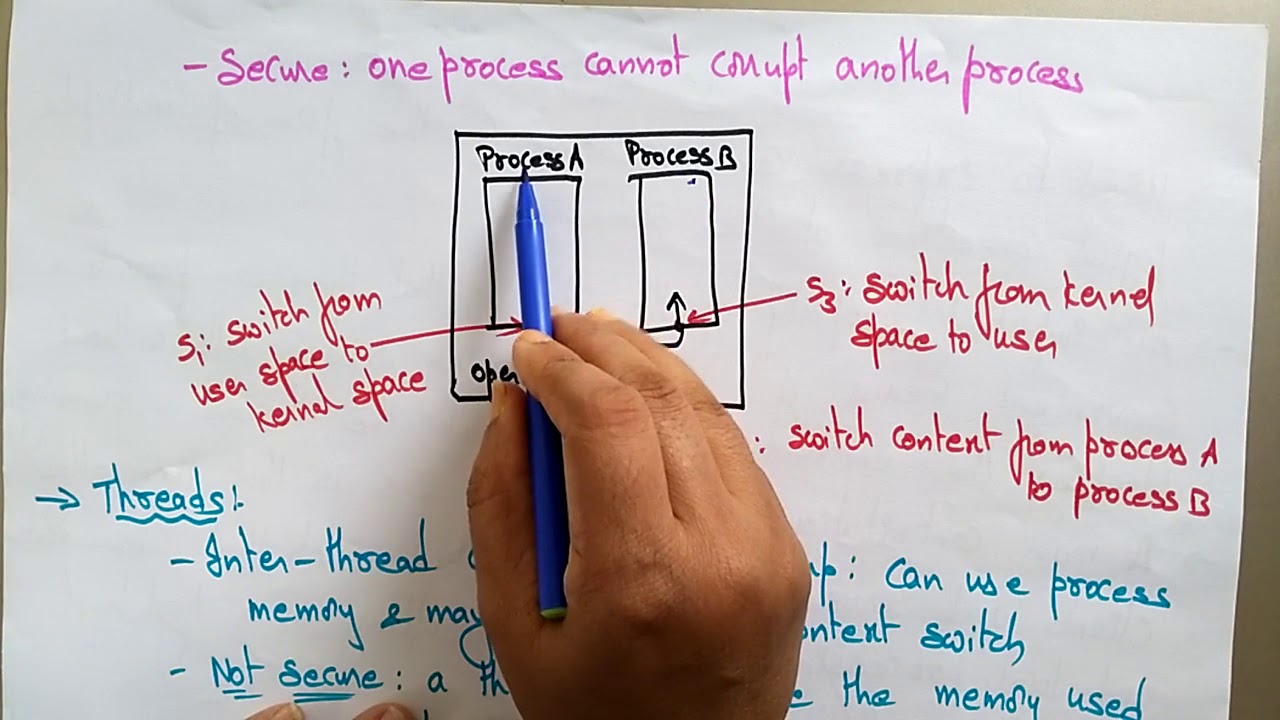 - Secure: one process cannot corrupt another process
Process A
Process B
S1: switch from
user space to
kernel space
S3: switch from kernel
space to user
: switch content from process A
to process B
→ Threads:-
- Inter-thread
: Can use process
memory & may
content switch
- Not secure: a
the memory used